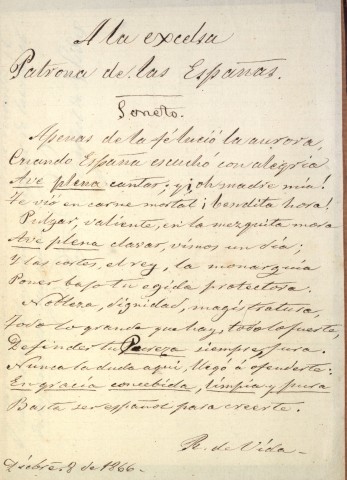 A la excelsa
Patrona de las Españas.
Soneto.
Apenas de la fé lució la aurora,
Cuando España escuchó con alegria
Ave plena cantar; y ¡oh madre mia!
Te vió en carne mortal ¡bendita hora!
Pulgar, valiente, en la mezquita mora
Ave plena clavar, vimos un dia;
Y las cortes, el rey, la monarquia
Poner bajo tu egida protectora.
Nobleza, dignidad, magistratura,
Todo lo grande que hay, todo lo fuerte,
Defender tu Pureza siempre jura.
Nunca la duda aqui, llegó á ofenderte:
En gracia concebida, limpia y pura
Basta ser español para creerte.
R. de Vida.
Dicbre 8 de 1866.